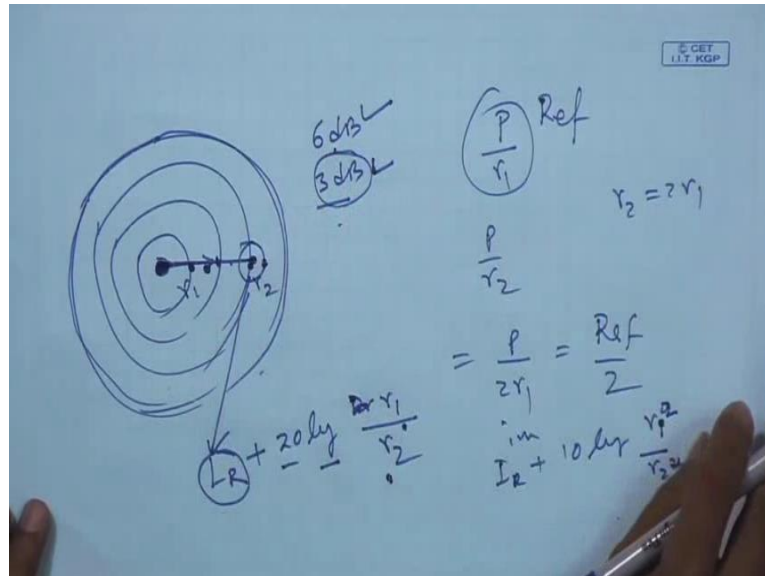 © CET
I.I.T. KGP
6dB
3dB
P/r₁ Ref
r₂ = 2r₁
P/r₂
= P/2r₁ = Ref/2
r₁
r₂
L_R + 20 log r₁/r₂
in
I_R + 10 log r₁²/r₂²